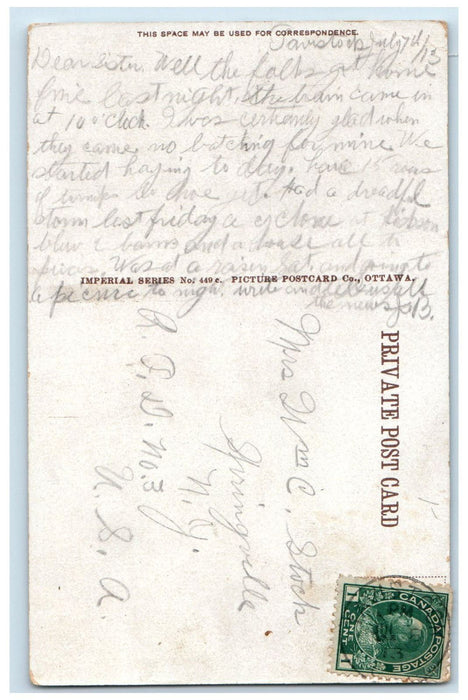 THIS SPACE MAY BE USED FOR CORRESPONDENCE.
Tavistock July 7th/13
Dear sister. Well the folks got home
fine last night, the train came in
at 10 o'clock. I was certainly glad when
they came no batching for mine. We
started haying to day. have 15 rows
of turnips to hoe yet. Had a dreadful
storm last friday a cyclone at
blew 2 barns and a house all to
pieces. Was at a raising and going to
a picnic to night. write and tell us all
the news
IMPERIAL SERIES No. 449 c. PICTURE POSTCARD CO., OTTAWA.
PRIVATE POST CARD
Mrs Wm C. Stock
Springville
N.Y.
R. F. D. No. 3
U. S. A
CANADA POSTAGE
1 1
ONE CENT
PM